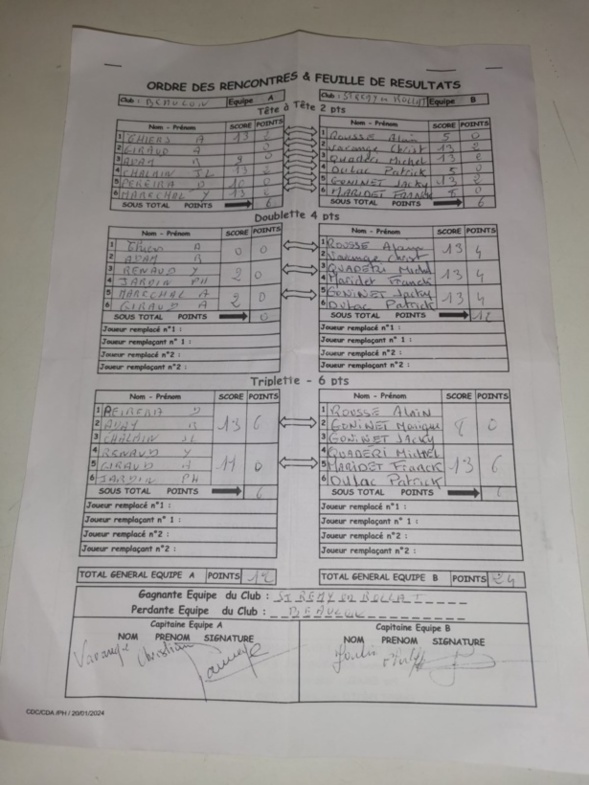 ORDRE DES RENCONTRES & FEUILLE DE RESULTATS
Club : BEAUCON Equipe A
Club : ST REMY en ROLLAT Equipe B
Tête à Tête 2 pts
Nom - Prénom SCORE POINTS Nom - Prénom SCORE POINTS
1 THIERS A 13 2 1 ROUSSE Alain 5 0
2 GIRAUD A 0 2 Varange Christ 13 2
3 ADAM B 9 0 3 Quaderi Michel 13 2
4 CHALAIN JL 13 2 4 Dulac Patrick 5 0
5 PEREIRA D 10 0 5 GONINET Jacky 13 2
6 MARECHAL Y 13 2 6 MARIDET FRANCK 0
SOUS TOTAL POINTS 6 SOUS TOTAL POINTS 6
Doublette 4 pts
Nom - Prénom SCORE POINTS Nom - Prénom SCORE POINTS
1 0 0 1 ROUSSE 13 4
2 ADAM B 2 Varange Christ
3 RENAUD Y 2 0 3 QUADERI Michel 13 4
4 JARDIN PH 4 Maridet Franck
5 MARECHAL A 2 0 5 GONINET Jacky 13 4
6 GIRAUD A 6 Dulac Patrick
SOUS TOTAL POINTS 0 SOUS TOTAL POINTS 12
Joueur remplacé n°1 : Joueur remplacé n°1 :
Joueur remplaçant n° 1 : Joueur remplaçant n° 1 :
Joueur remplacé n°2 : Joueur remplacé n°2 :
Joueur remplaçant n°2 : Joueur remplaçant n°2 :
Triplette - 6 pts
Nom - Prénom SCORE POINTS Nom - Prénom SCORE POINTS
1 PEIRERA D 13 6 1 ROUSSE Alain 0
2 ADAM B 2 GONINET Monique
3 CHALAIN JL 3 GONINET Jacky
4 RENAUD Y 11 0 4 QUADERI Michel 13 6
5 GIRAUD A 5 MARIDET Franck
6 JARDIN PH 6 Dulac Patrick
SOUS TOTAL POINTS 6 SOUS TOTAL POINTS
Joueur remplacé n°1 : Joueur remplacé n°1 :
Joueur remplaçant n° 1 : Joueur remplaçant n° 1 :
Joueur remplacé n°2 : Joueur remplacé n°2 :
Joueur remplaçant n°2 : Joueur remplaçant n°2 :
TOTAL GENERAL EQUIPE A POINTS 12 TOTAL GENERAL EQUIPE B POINTS 24
Gagnante Equipe du Club : ST REMY en ROLLAT
Perdante Equipe du Club :
Capitaine Equipe A Capitaine Equipe B
NOM PRENOM SIGNATURE NOM PRENOM SIGNATURE
Varange Christian
CDC/CDA /PH / 20/01/2024